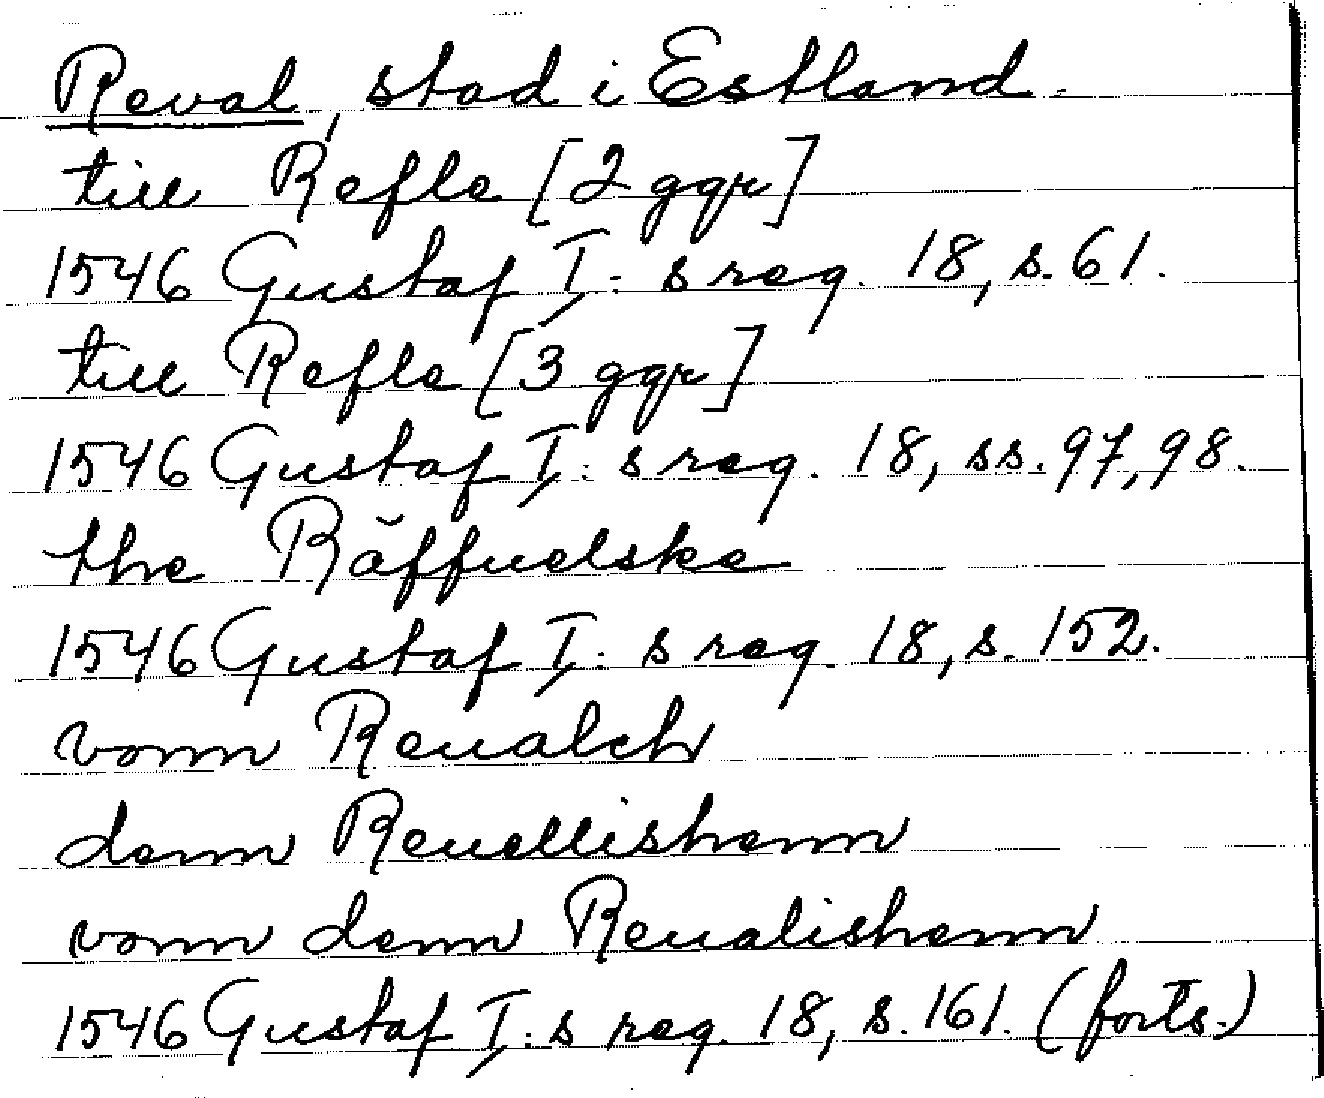 Reval, stad i Estland.
till Refle [2 ggr]
1546 Gustaf I:s reg. 18, s. 61.
till Refle [3 ggr]
1546 Gustaf I:s reg. 18, ss. 97, 98.
the Räffuelske
1546 Gustaf I:s reg. 18, s. 152.
vonn Reualch
denn Reuellishenn
vonn denn Reualishenn
1546 Gustaf I:s reg. 18, s. 161. (forts.)